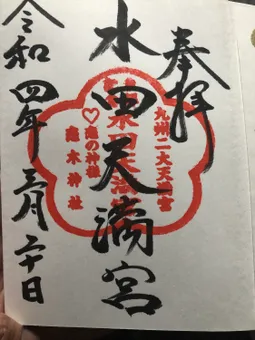 奉拝
水田天満宮
令和四年三月二十日
九州二大天満宮
水田天満宮
♡恋の神様
恋木神社